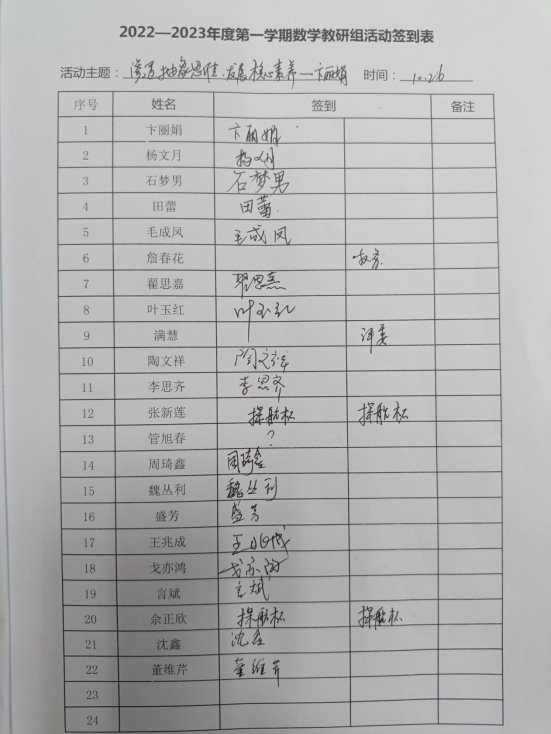 2022—2023年度第一学期数学教研组活动签到表
活动主题：渗透抽象思维·发展核心素养—卞丽娟 时间：10.26
序号 姓名 签到 备注
1 卞丽娟 卞丽娟
2 杨文月 杨文月
3 石梦男 石梦男
4 田蕾 田蕾
5 毛成凤 毛成凤
6 詹春花
7 翟思嘉 翟思嘉
8 叶玉红 叶玉红
9 满慧 评委
10 陶文祥 陶文祥
11 李思齐 李思齐
12 张新莲 探航杯 探航杯
13 管旭春 ?
14 周琦鑫 周琦鑫
15 魏丛利 魏丛利
16 盛芳 盛芳
17 王兆成 王兆成
18 戈亦鸿 戈亦鸿
19 言斌 言斌
20 佘正欣 探航杯 探航杯
21 沈鑫 沈鑫
22 董维芹 董维芹
23
24